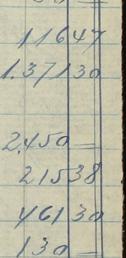 11647
1.37130
2.450 =
21538
46130
130 =